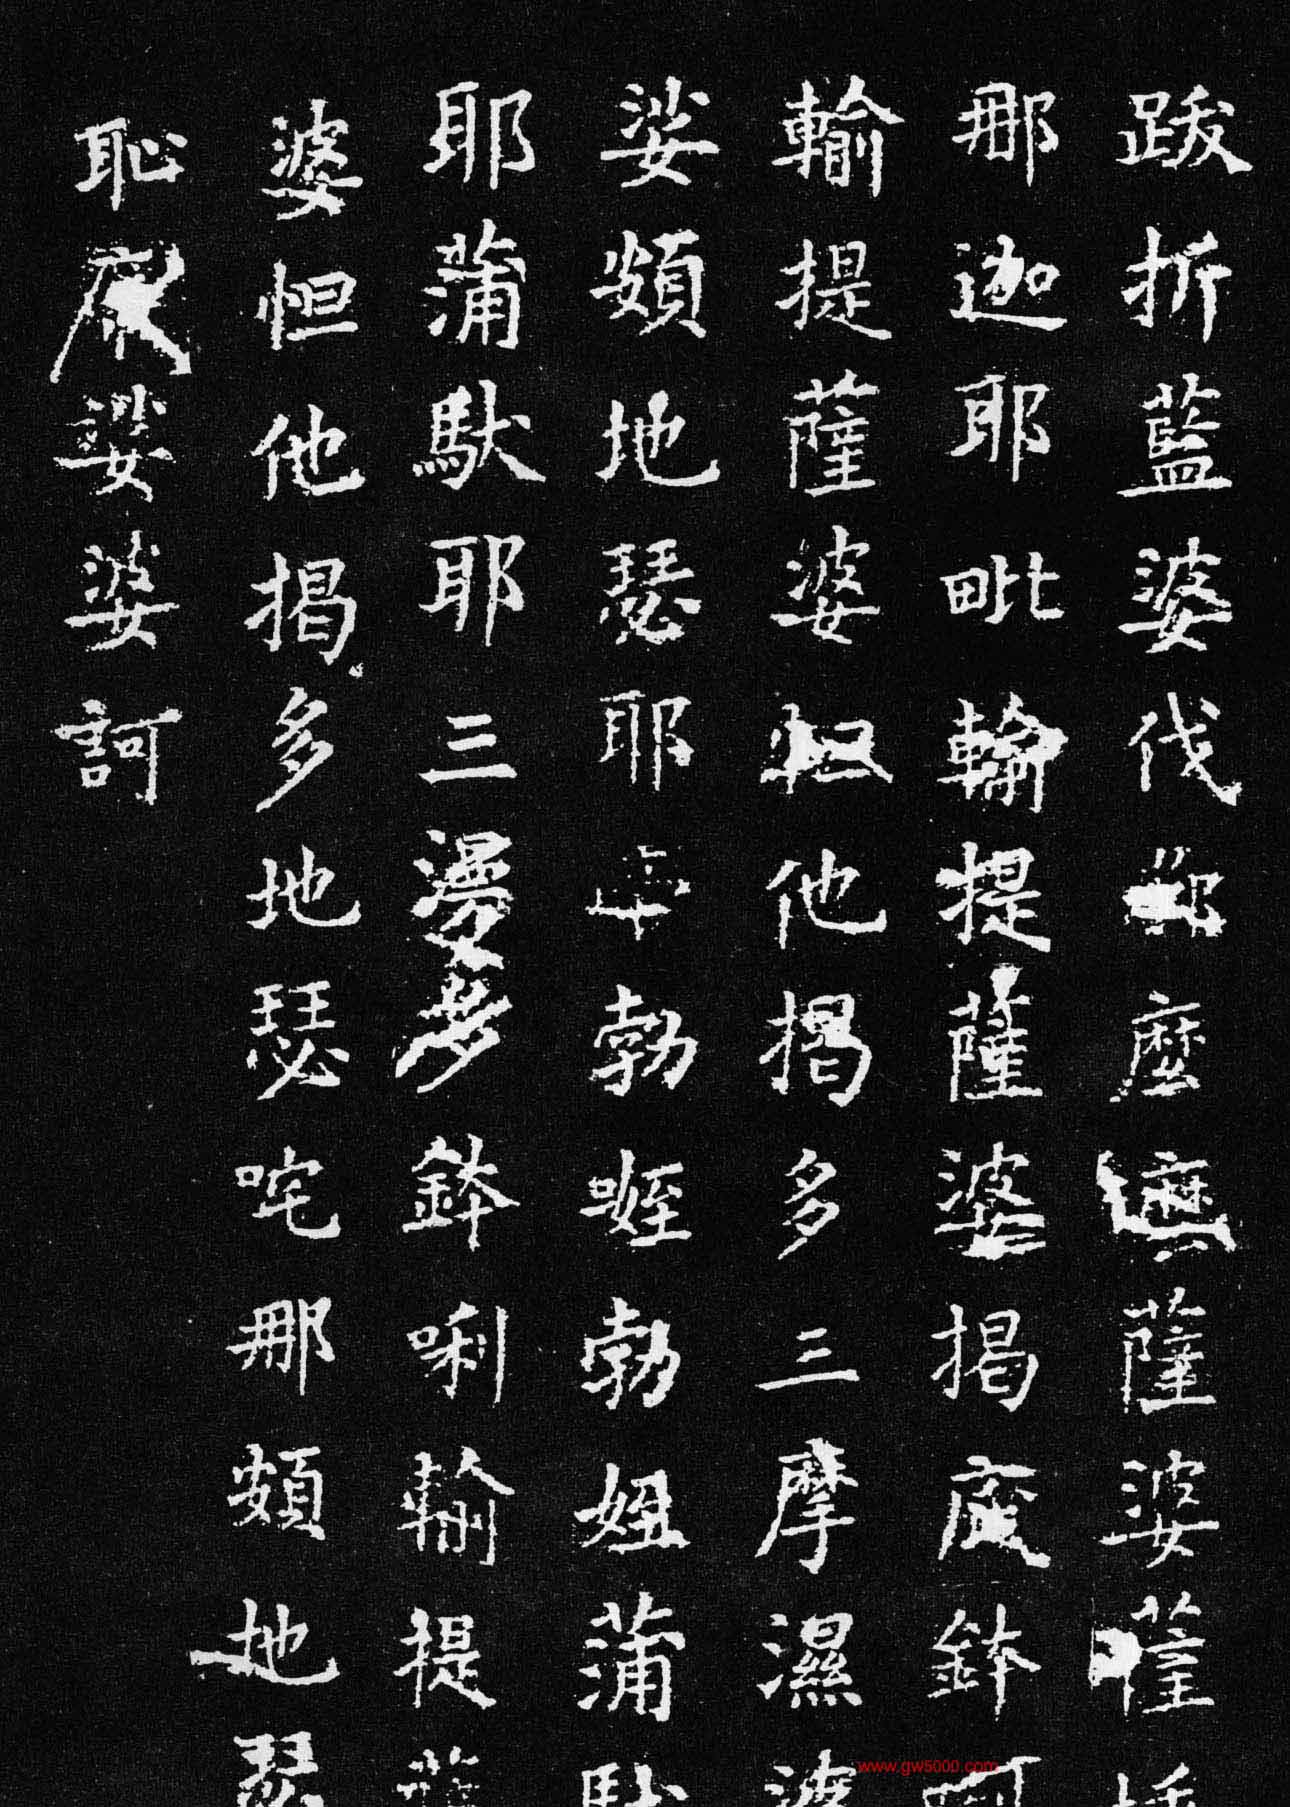 跋折藍婆伐麼薩婆薩
那迦耶毗輸提薩婆揭鉢
輸提薩婆他揭多三摩濕婆
娑頞地瑟耶勃啀勃妞蒲馱
耶蒲馱耶三漫多鉢唎輸提薩
婆怛他揭多地瑟咤那頞地瑟
恥娑婆訶
www.gw5000.com